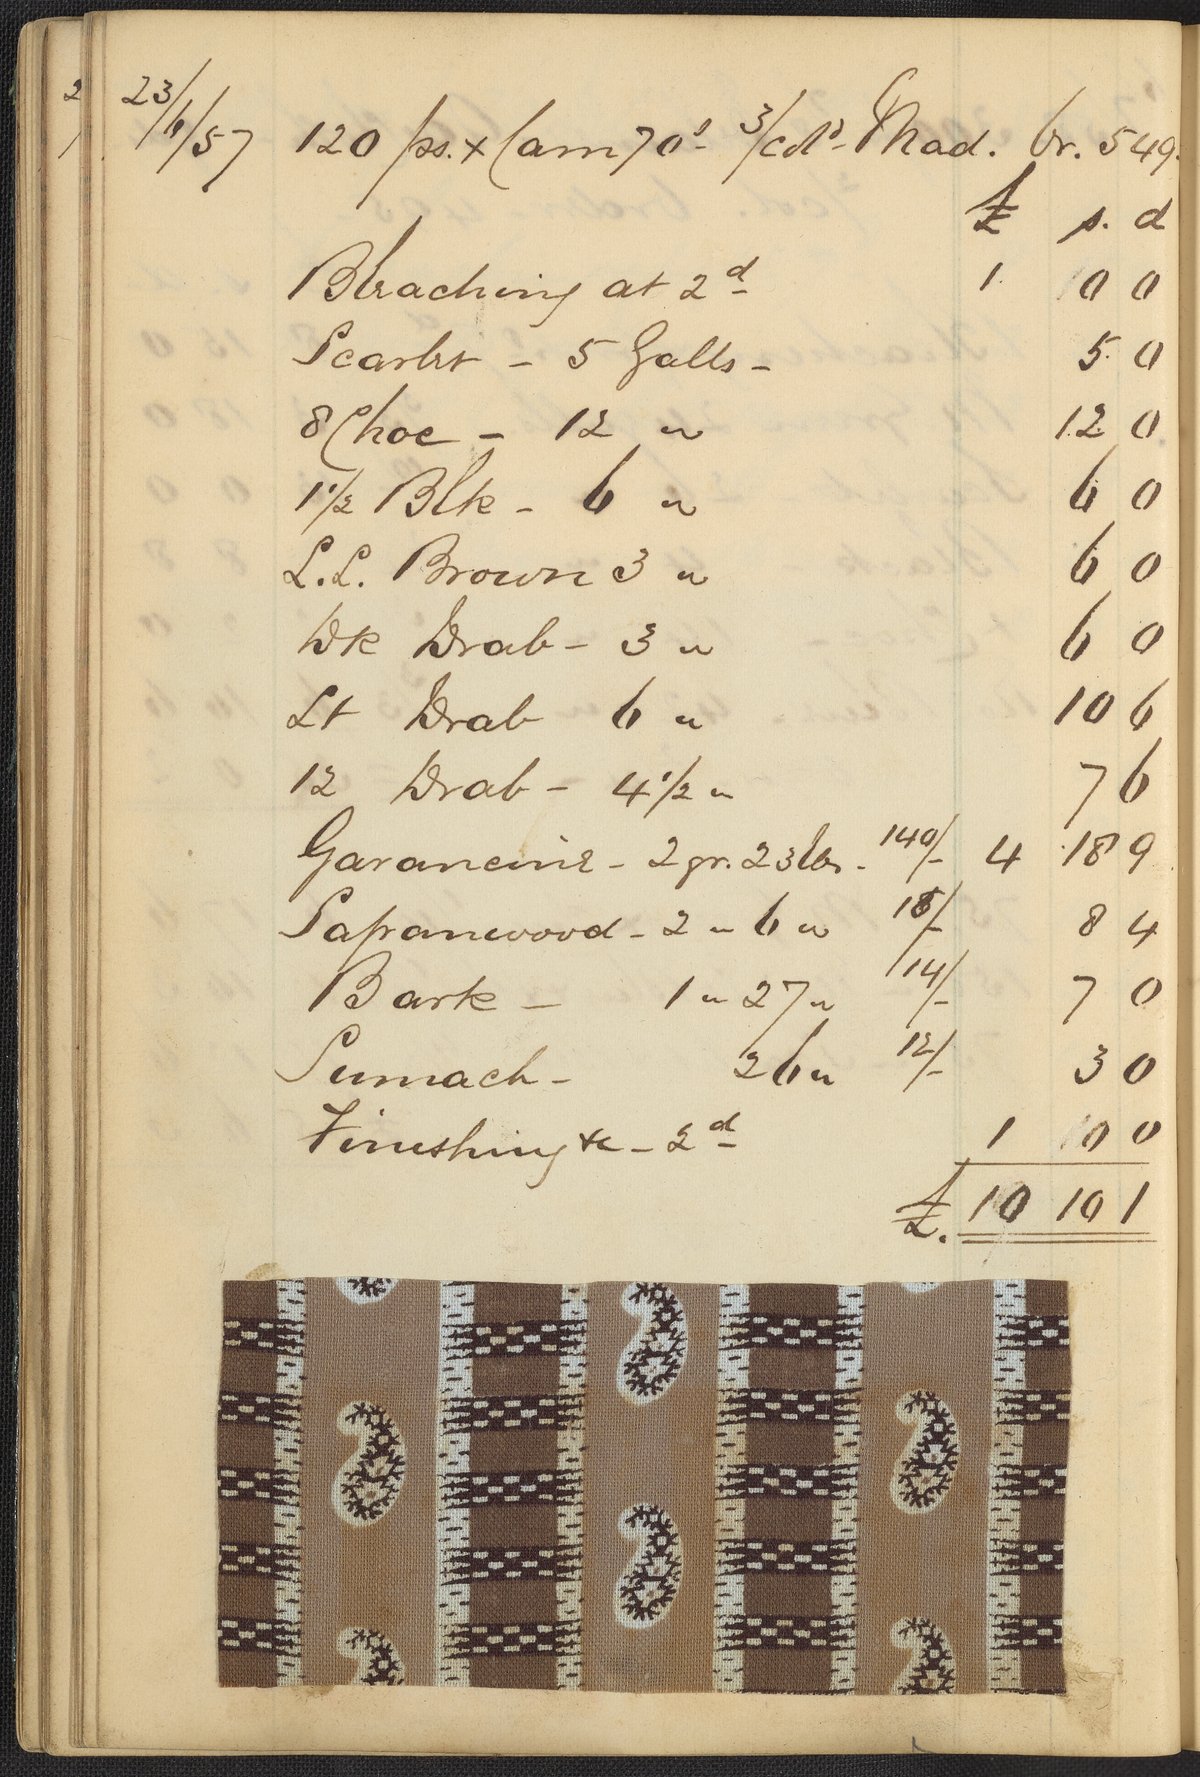 2 23/6/57 120 ps. x Cam 70s 3/cds Mad. Or. 549.
£ s. d
Bleaching at 2d 1 0 0
Scarlet - 5 Galls - 5 0
8 Choc - 12 " 12 0
1 1/2 Blk - 6 " 6 0
L.L. Brown 3 " 6 0
Dk Drab - 3 " 6 0
Lt Drab 6 " 10 6
12 Drab - 4 1/2 " 7 6
Garancine - 2 qr. 23 lbs. 140/- 4 18 9
Sapanwood - 2 " 6 " 8 4
Bark - 1 " 27 " 14/- 7 0
Sumach - 26 " 12/- 3 0
Finishing &c - 2d 1 0 0
£. 10 10 1